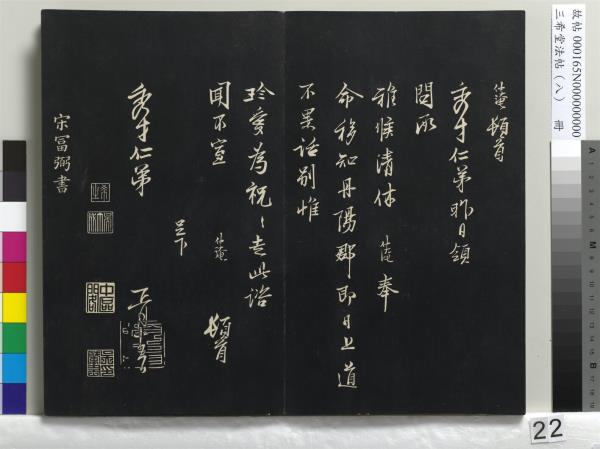 故帖 000165N000000000
三希堂法帖（八） 冊
頓首
秀才仁弟昨日領
問承
雅候清休 奉
命移知丹陽郡即日上道
不果話別惟
珍愛為祝〻走此諮
聞不宣 頓首
秀才仁弟
足下
宋富弼書
22